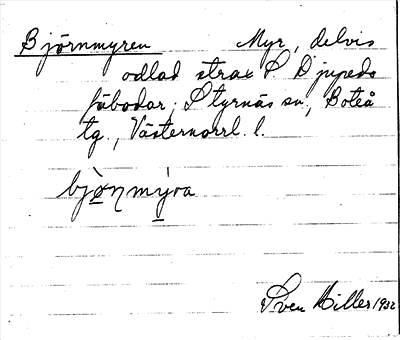 Björnmyren Myr, delvis
odlad strax S Djupeds
fäbodar, Styrnäs sn., Boteå
tg., Västernorrl. l.
bjònmýra
Sven Hiller 1932